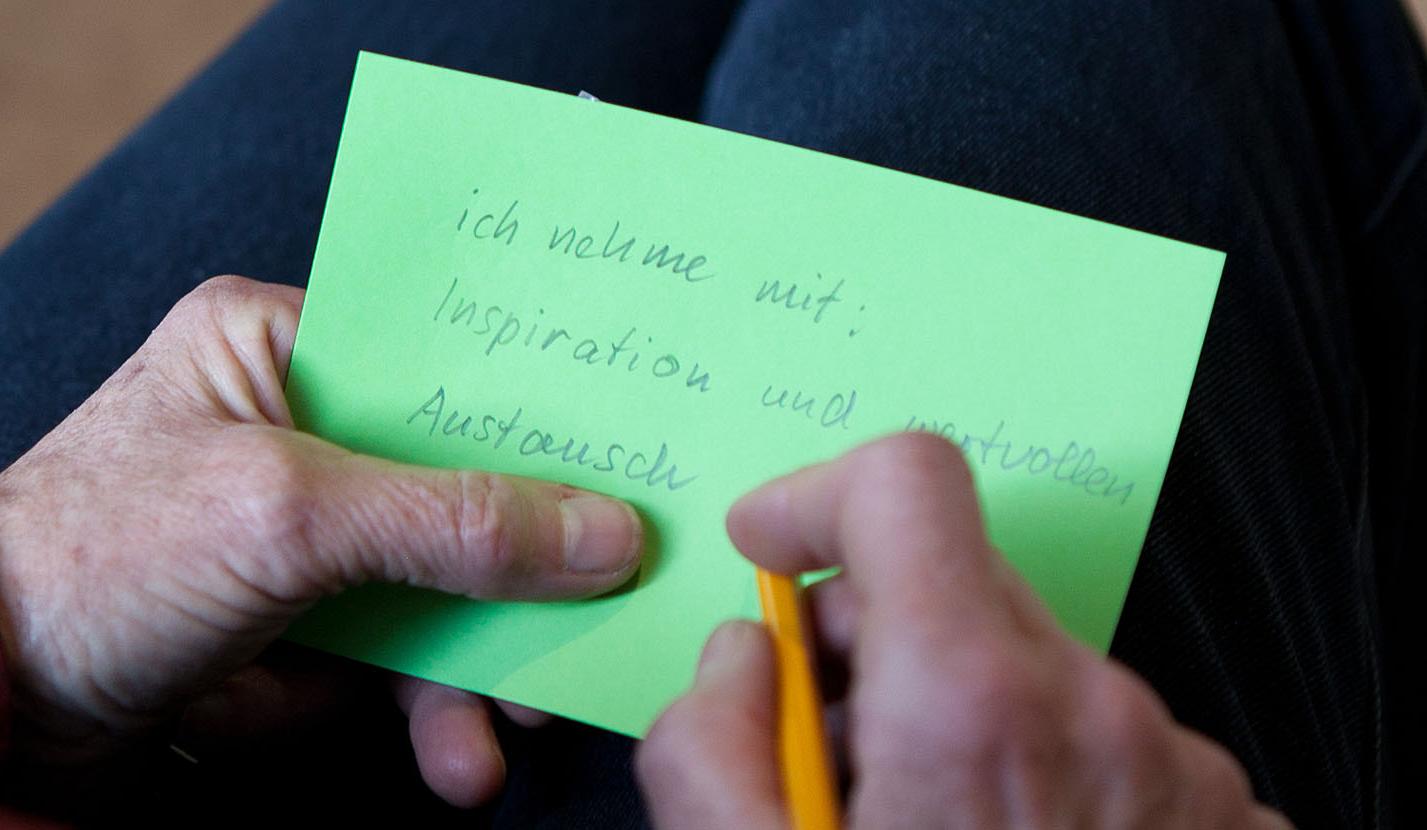 ich nehme mit:
Inspiration und wertvollen
Austausch